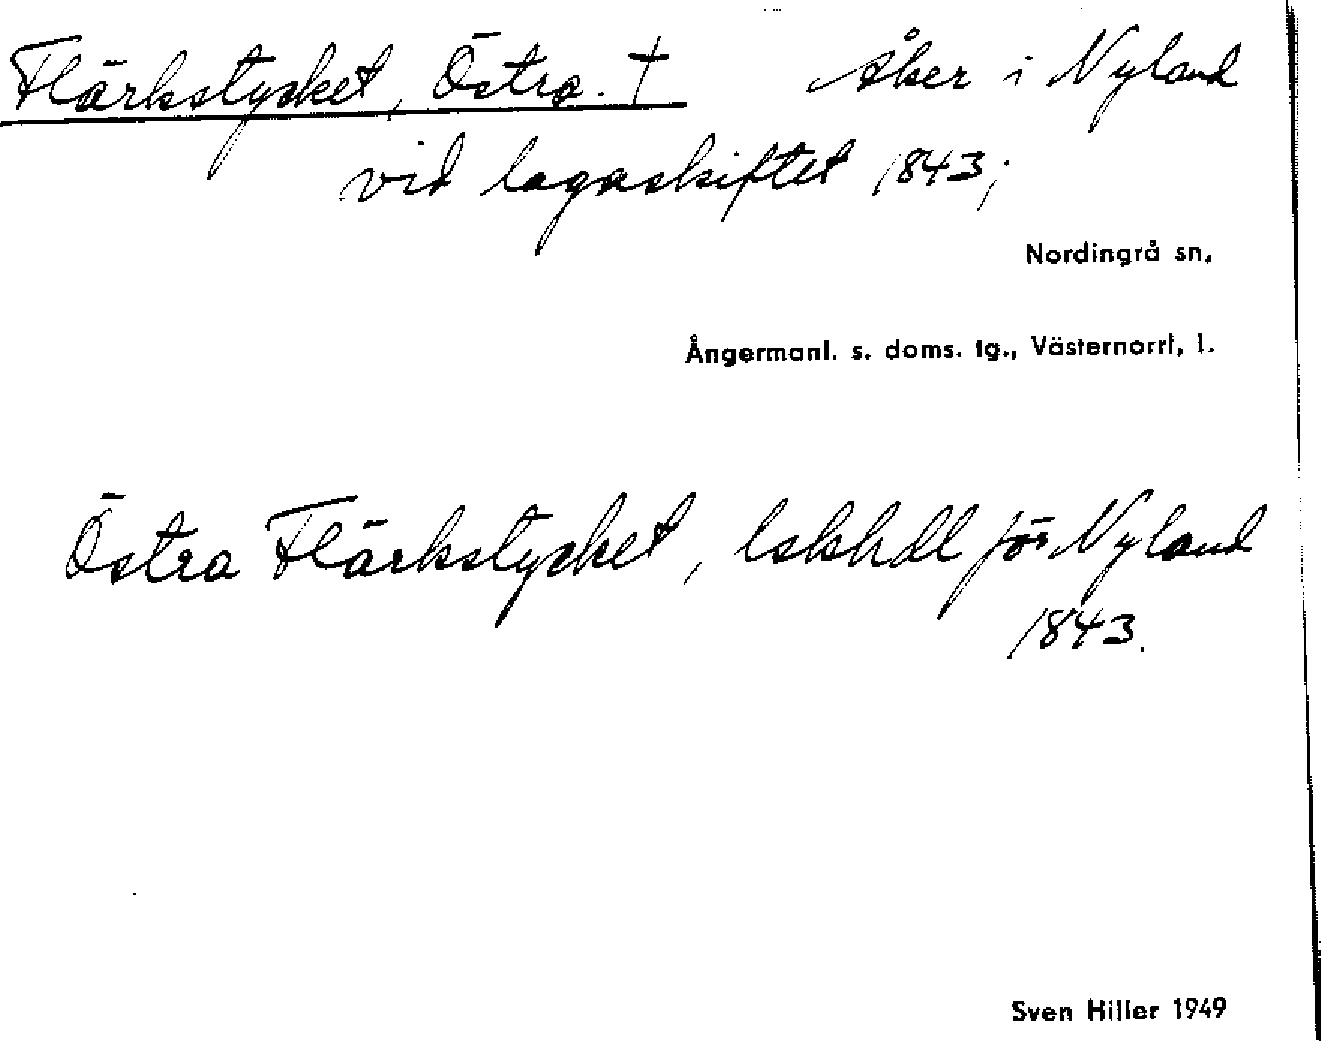 Flärkstycket, Östra. † Åker i Nyland
vid lagaskiftet 1843;
Nordingrå sn,
Ångermanl. s. doms. tg., Västernorrl, l.
Östra Flärkstycket, lskhdl för Nyland
1843.
Sven Hiller 1949